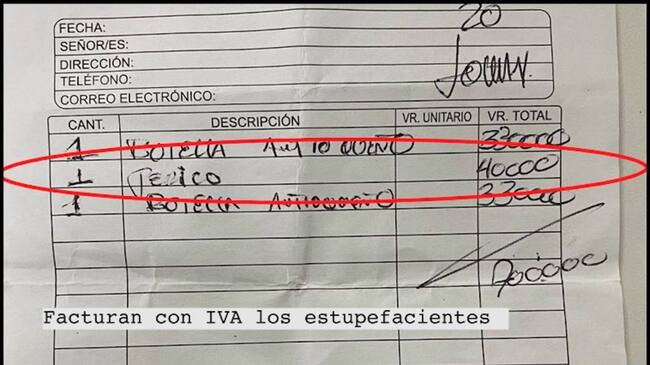 20
FECHA:
SEÑOR/ES:
DIRECCIÓN:
TELÉFONO:
CORREO ELECTRÓNICO:
CANT. DESCRIPCIÓN VR. UNITARIO VR. TOTAL
1 BOTELLA ANTIOQUEÑO 330000
1 PERICO 40000
1 BOTELLA ANTIOQUEÑO 330000
700000
Facturan con IVA los estupefacientes